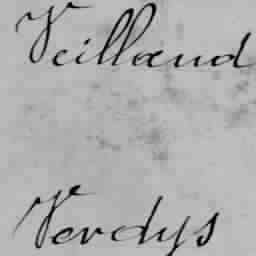 Veilland
Verdys